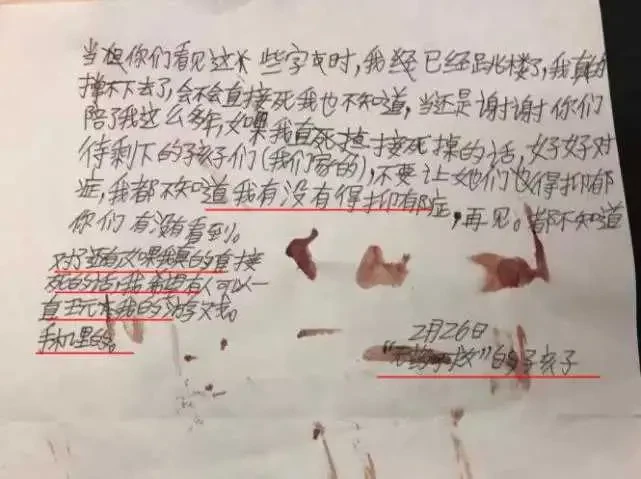 当你们看见这些字时,我经已经跳楼了,我真的
撑不下去了,会不会直接死我也不知道,当还是谢谢你们
陪了我这么多年,如果我直死接死掉的话,好好对
待剩下的孩子们(我们家的),不要让她们也得抑郁
症,我都不知道我有没有得抑郁症,再见。都不知道
你们有没有看到。
对了还有如果我真的直接
死的话,我希望有人可以一
直玩我的游戏。
手机里的。
2月26日
“无药可救”的孩子